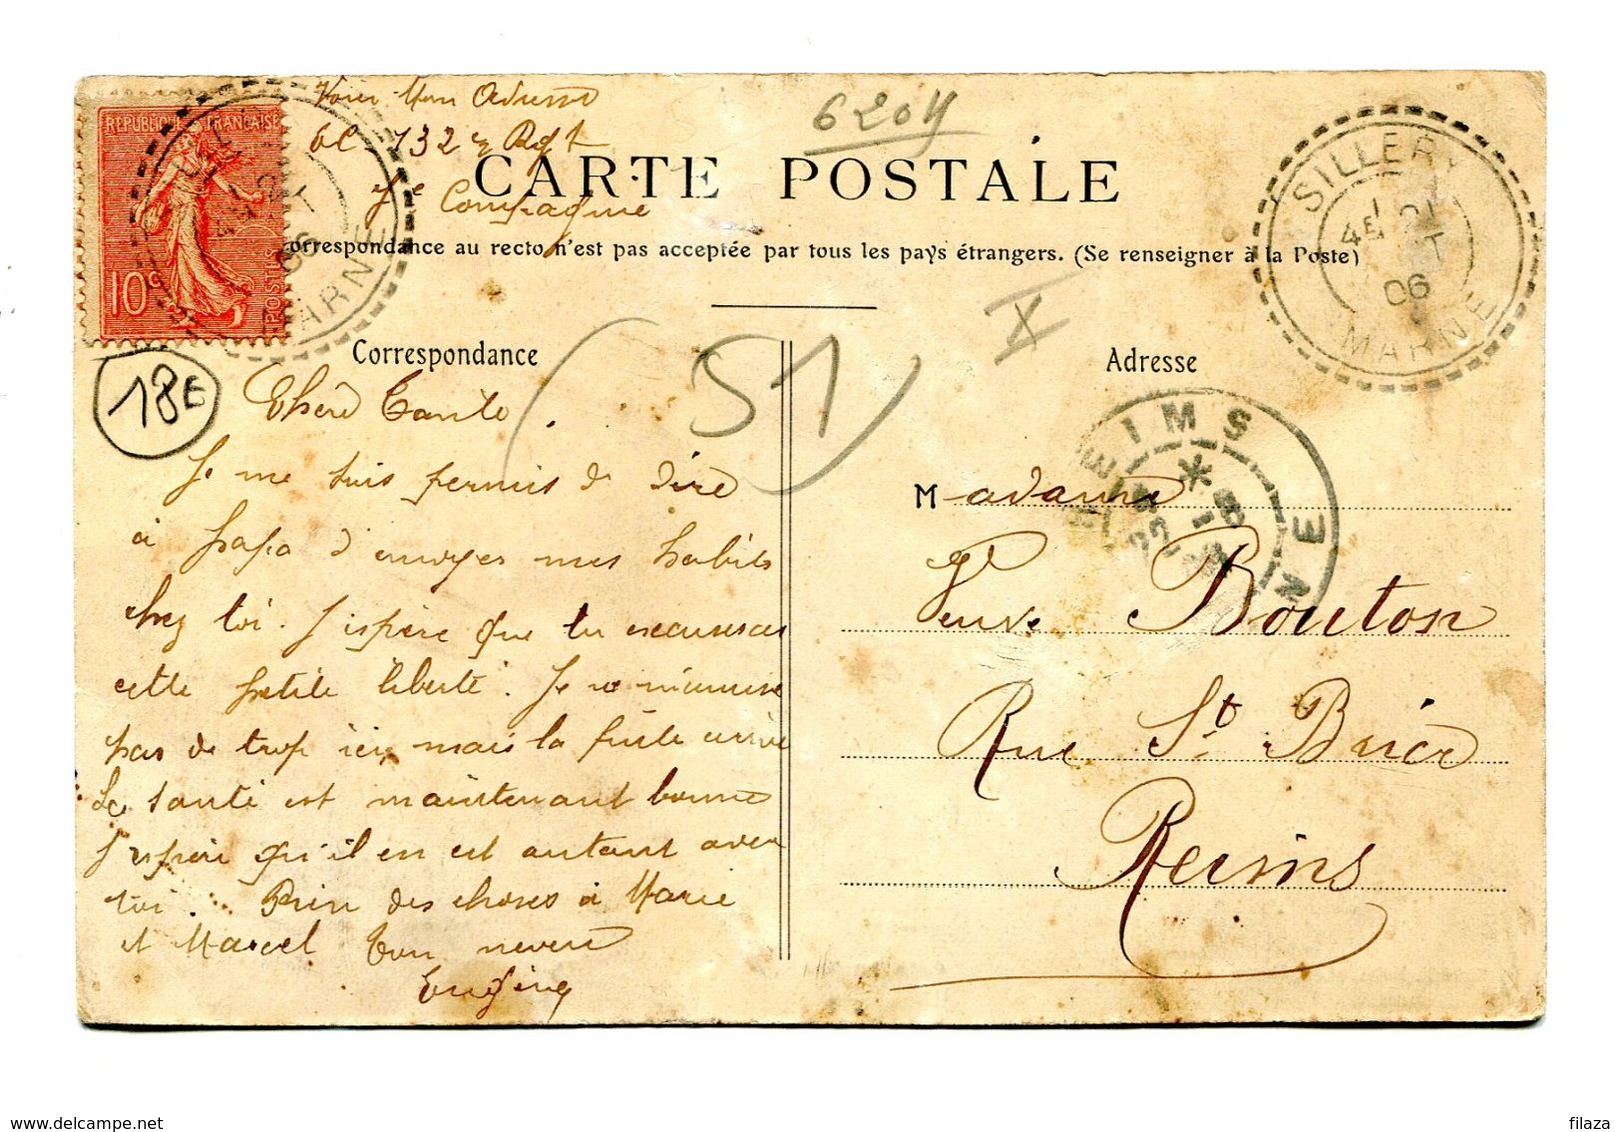 Voici Mon Adresse
132e Rgt
Compagnie
6204
CARTE POSTALE
orrespondance au recto n'est pas acceptée par tous les pays étrangers. (Se renseigner à la Poste)
REPUBLIQUE FRANÇAISE
10c
POSTES
MARNE
06
SILLERY
4E 21
06
MARNE
18E
(51)
X
Correspondance
Chère Tante.
Je me suis permis de dire
à papa d'envoyer mes habits
chez toi. J'espère que tu excuseras
cette petite liberté. Je ne m'ennuie
pas de trop ici, mais la fuite arrive
La santé est maintenant bonne
J'espère qu'il en est autant avec
toi. Bien des choses à Marie
et Marcel Ton neveu
Eugène
Adresse
REIMS
22
NE
Madame
Veuve Bouton
Rue St Brice
Reims
filaza
www.delcampe.net